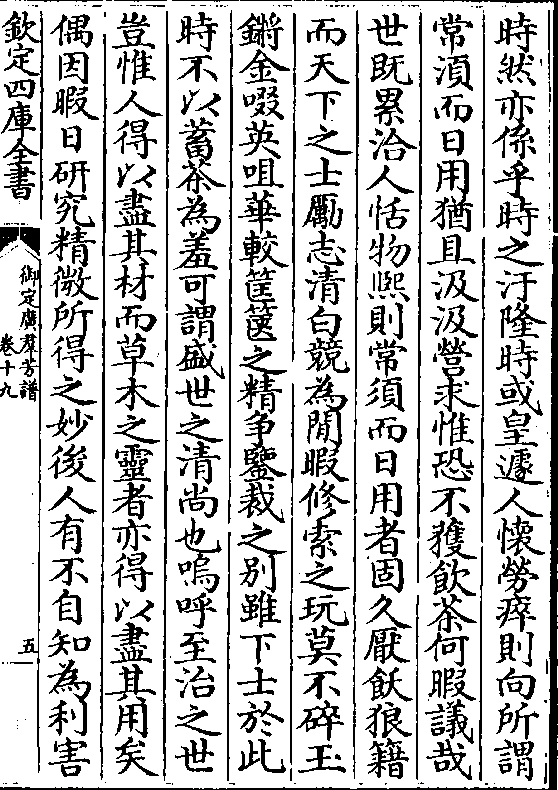 時然亦係乎時之汙隆時或皇遽人懷勞瘁則向所謂
常湏而日用猶且汲汲營求惟恐不獲飲茶何暇議哉
世既累洽人恬物熈則常須而日用者固久厭飫狼籍
而天下之士勵志清白競為閒暇修索之玩莫不碎玉
鏘金啜英咀華較筐篋之精争鑒裁之别雖下士於此
時不以蓄茶為羞可謂盛世之清尚也嗚呼至治之世
豈惟人得以盡其材而草木之靈者亦得以盡其用矣
偶因暇日研究精微所得之妙後人有不自知為利害
欽定四庫全書
御定廣羣芳譜
卷十九
五